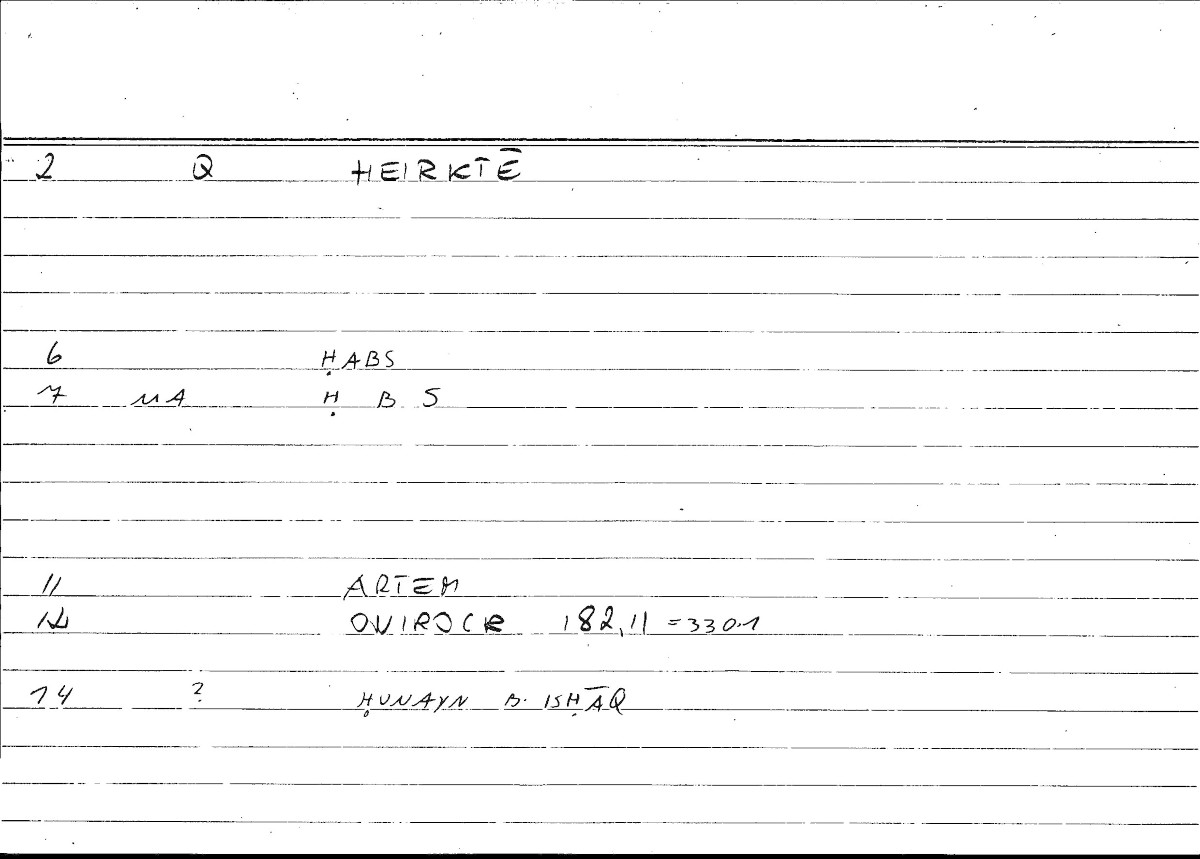 2 Q HEIRKTĒ
6 ḤABS
7 MA Ḥ B S
11 ARTEM
12 ONIROCR 182,11 =330.1
14 ? ḤUNAYN B. ISḤĀQ